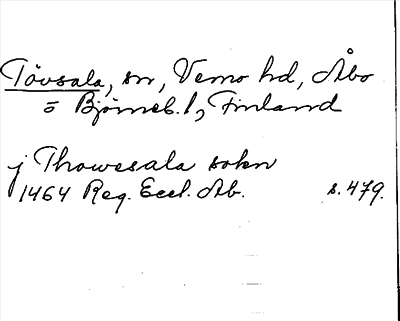 Tövsala, sn, Vemo hd, Åbo
o Björneb. l, Finland
j Thowesala sokn
1464 Reg. Eccl. Ab. s. 479.